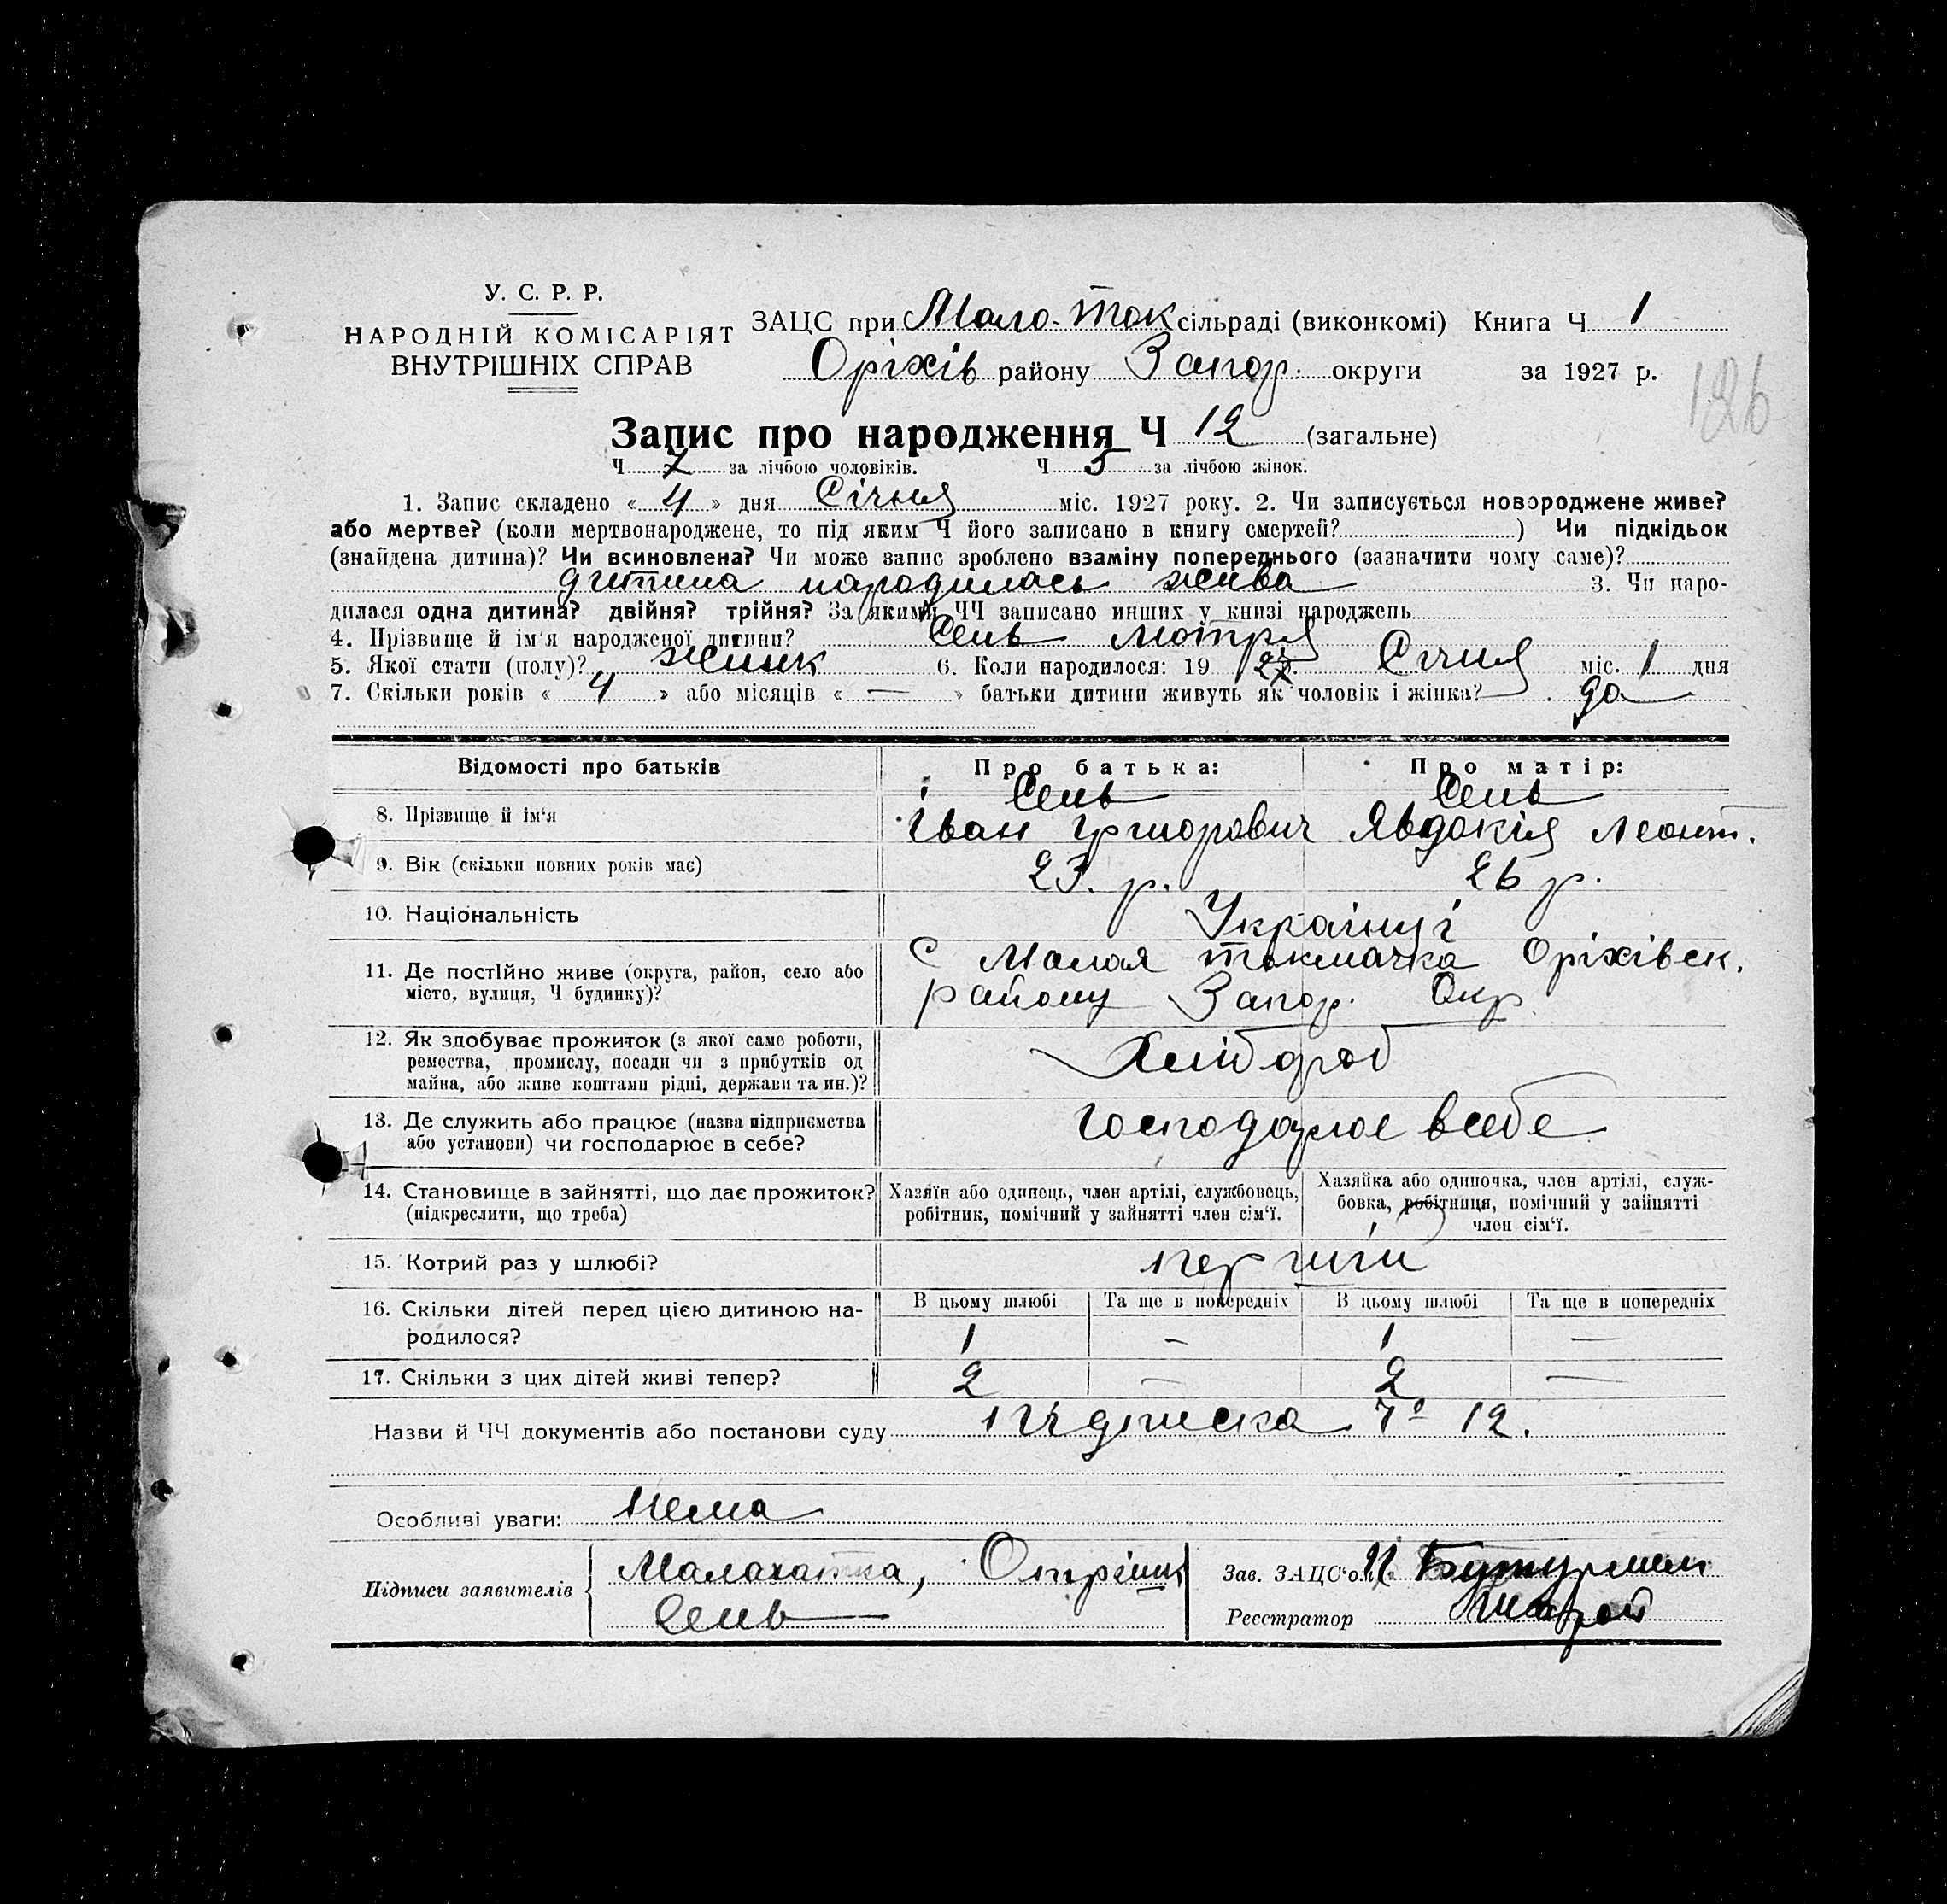 У. С. Р. Р.
НАРОДНІЙ КОМІСАРІЯТ
ВНУТРІШНІХ СПРАВ
ЗАЦС при Мало-Ток сільраді (виконкомі) Книга Ч 1
Оріхів району Запор. округи за 1927 р.
126
Запис про народження Ч 12 (загальне)
Ч 7 за лічбою чоловіків. Ч 5 за лічбою жінок.
1. Запис складено « 4 » дня Січня міс. 1927 року. 2. Чи записується новороджене живе?
або мертве? (коли мертвонароджене, то під яким Ч його записано в книгу смертей?) Чи підкідьок
(знайдена дитина)? Чи всиновлена? Чи може запис зроблено взаміну попереднього (зазначити чому саме)?
дитина народилась жива 3. Чи наро-
дилася одна дитина? двійня? трійня? За якими ЧЧ записано инших у книзі народжень
4. Прізвище й ім'я народженої дитини? Сень Мотря
5. Якої стати (полу)? жінк 6. Коли народилося: 19 27 Січня міс. 1 дня
7. Скільки років « 4 » або місяців « — » батьки дитини живуть як чоловік і жінка? да
Відомості про батьків Про батька: Про матір:
Сень Сень
8. Прізвище й ім'я Іван Григорович Явдокія Леонт.
9. Вік (скільки повних років має) 23. р. 26 р.
10. Національність Українці
11. Де постійно живе (округа, район, село або С Малая токмачка Оріхівск.
місто, вулиця, Ч будинку)? району Запор. Окр.
12. Як здобуває прожиток (з якої саме роботи, Хлібороб
ремества, промислу, посади чи з прибутків од
майна, або живе коштами рідні, держави та ин.)?
13. Де служить або працює (назва підприємства Господарює в себе
або установи) чи господарює в себе?
14. Становище в зайнятті, що дає прожиток? Хазяїн або одинець, член артілі, службовець, Хазяйка або одиночка, член артілі, служ-
(підкреслити, що треба) робітник, помічний у зайнятті член сім'ї. бовка, робітниця, помічний у зайнятті
член сім'ї.
15. Котрий раз у шлюбі? перший
16. Скільки дітей перед цією дитиною на- В цьому шлюбі Та ще в попередніх В цьому шлюбі Та ще в попередніх
родилося? 1 - 1 —
17. Скільки з цих дітей живі тепер? 2 — 2 —
Назви й ЧЧ документів або постанови суду Підписка 12.
Особливі уваги: Нема
Підписи заявителів Малахатка, Опришк
Сень
Зав. ЗАЦС'ом
Реєстратор